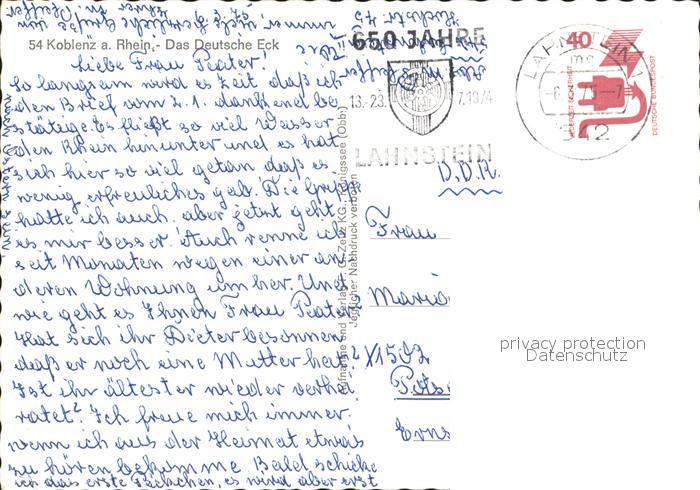 54 Koblenz a. Rhein,- Das Deutsche Eck
Liebe Frau Peater!
So langsam wird es Zeit daß ich
den Brief vom 2.1. dankend be
stätige. Es fließt so viel Wasser
den Rhein hinunter und es hat
sich hier so viel getan daß es
wenig erfreuliches gab. Die Grippe
hatte ich auch. aber jetzt geht
es mir besser. Auch renne ich
seit Monaten wegen einer an
deren Wohnung umher. Und
wie geht es Ihnen Frau Peater?
Hat sich ihr Dieter besonnen
daß er noch eine Mutter hat?
Ist ihr ältester wieder verhei
ratet? Ich freue mich immer
wenn ich aus der Heimat etwas
zu hören bekomme. Bald schicke
ich das erste Päckchen, es wird aber erst
Aufnahme und Verlag: G. Zenz KG., Königssee (Obb)
Jeglicher Nachdruck verboten
650 JAHRE
13.-23. 7.1974
LAHNSTEIN
LAHNSTEIN 1
mc
-7
542
40
DEUTSCHE BUNDESPOST
D.D.R.
Frau
Maria
X1502
Pots
Erns
privacy protection
Datenschutz